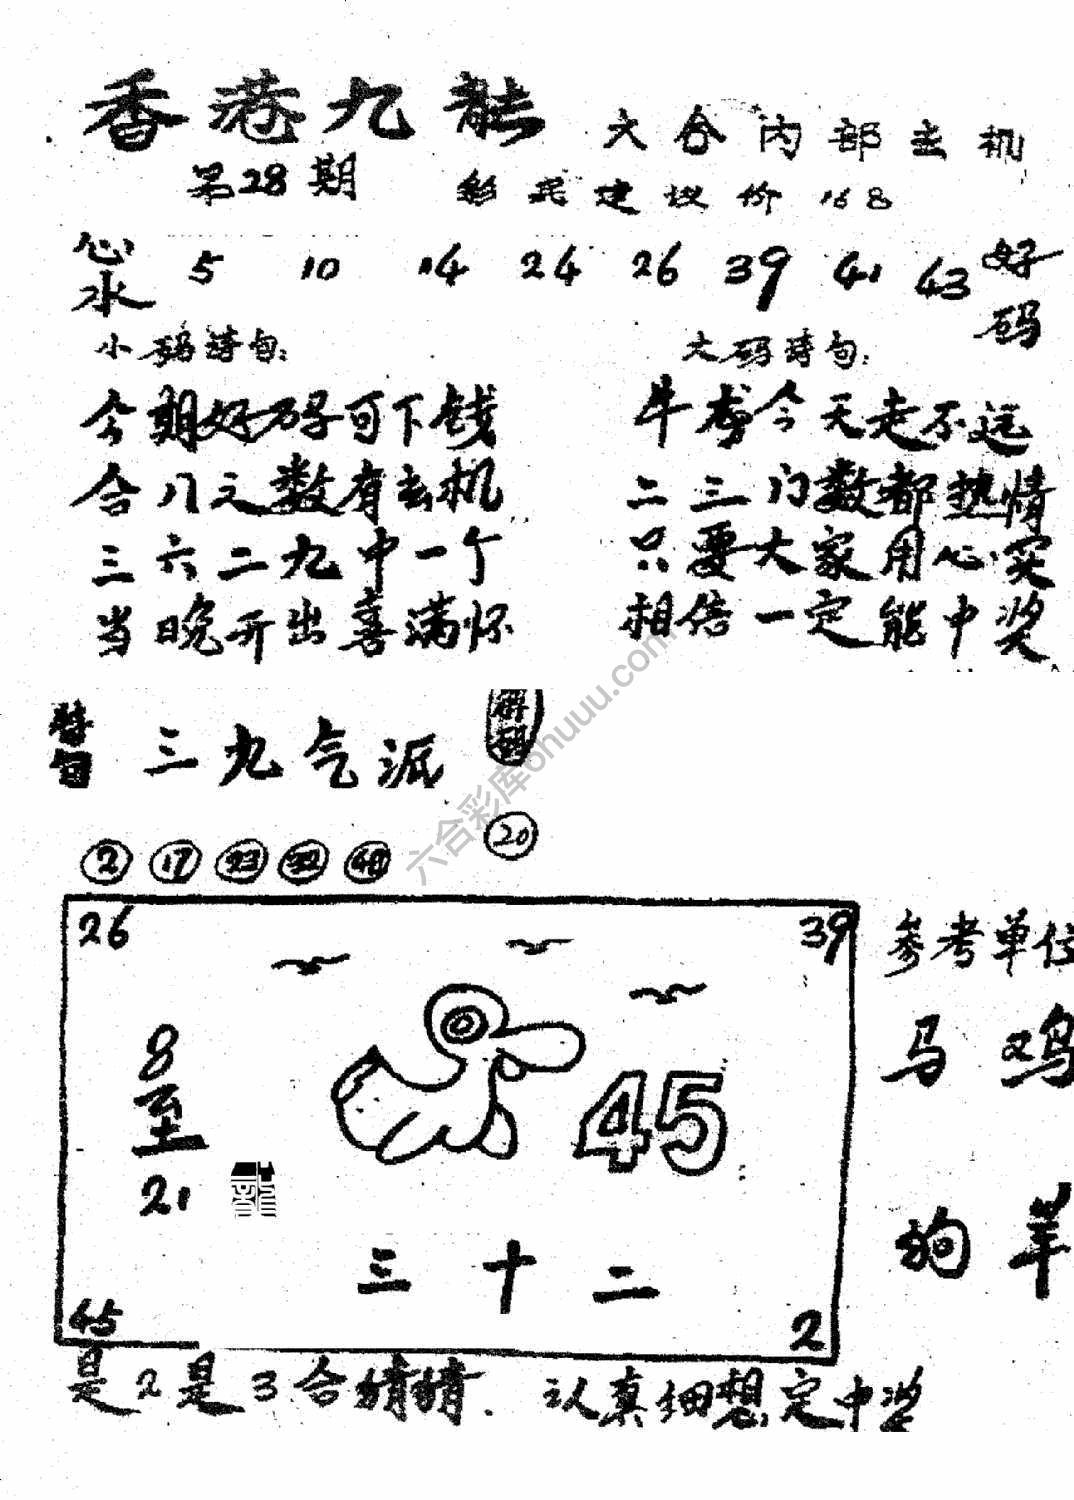 香港九龙
六合内部玄机
第28期
彩民建议价168
心水 5 10 14 24 26 39 41 43 好码
小码诗句:
今期好码可下钱
合八之数有玄机
三六二九中一个
当晚开出喜满怀
大码诗句:
牛孝今天走不远
二三门数都热情
只要大家用心实
相信一定能中奖
暂 三九气派
20
2 17 23 32 48
26 39
8至21
45
三十二
45 2
参考单位
马 鸡
狗 羊
是2是3合猜猜. 认真细想定中奖
六合彩库6huuu.com